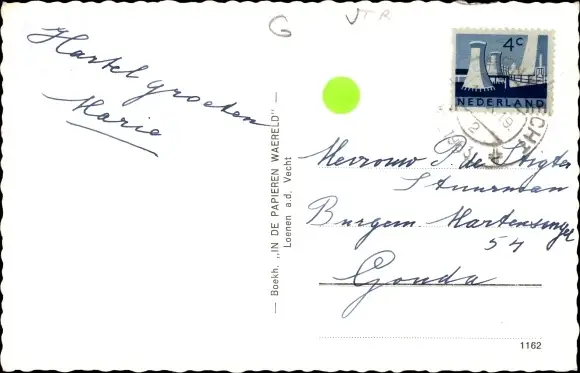 G
VTR
4c
NEDERLAND
Hartel groeten
Marie
Boekh. „IN DE PAPIEREN WAERELD"
Loenen a.d. Vecht
Mevrouw P. de Stigter
Stuurman
Burgem Martensingel
54
Gouda
1162